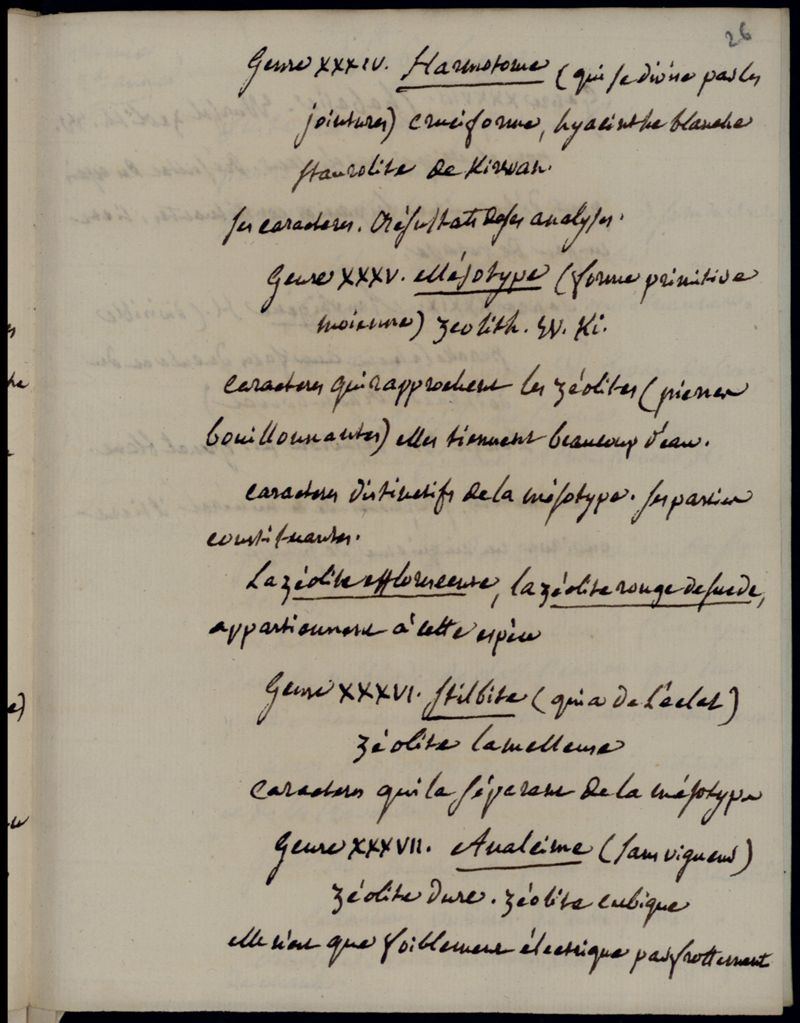 26
Genre XXXIV. Harmotome (qui se divise par les
jointures) cruciforme, hyacinthe blanche
staurolite de Kirwan.
ses caracteres. Résultats de ses analyses.
Genre XXXV. Mésotype (forme primitive
moienne) zeolith. W. Ki.
caracteres qui rapprochent les zéolites (pierres
bouillonnantes) elles tiennent beaucoup d'eau.
caracteres distinctifs de la mésotype. ses parties
constituantes.
La zéolite efflorescense, la zéolite rouge de suede,
appartiennent à cette espèce
Genre XXXVI. Stilbite (qui a de l'éclat)
zéolite lamelleuse
caracteres qui la séparent de la mésotype
Genre XXXVII. Analcime (sans vigueur)
zéolite dure. zéolite cubique
elle n'est que foiblement électrique par frottement